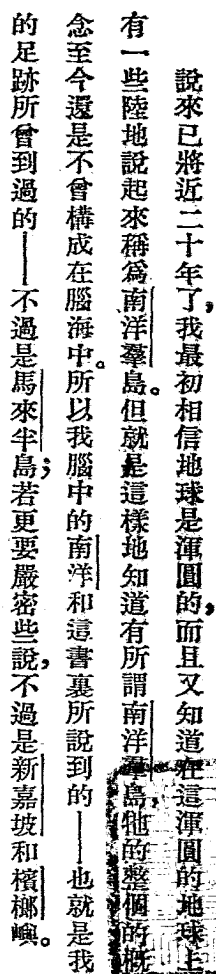 說來已將近二十年了，我最初相信地球是渾圓的，而且又知道在這渾圓的地球上
有一些陸地說起來稱爲南洋羣島。但就是這樣地知道有所謂南洋羣島，牠的整個的概
念至今還是不曾構成在腦海中。所以我腦中的南洋和這書裏所說到的——也就是我
的足跡所曾到過的——不過是馬來半島；若更要嚴密些說，不過是新嘉坡和檳榔嶼。